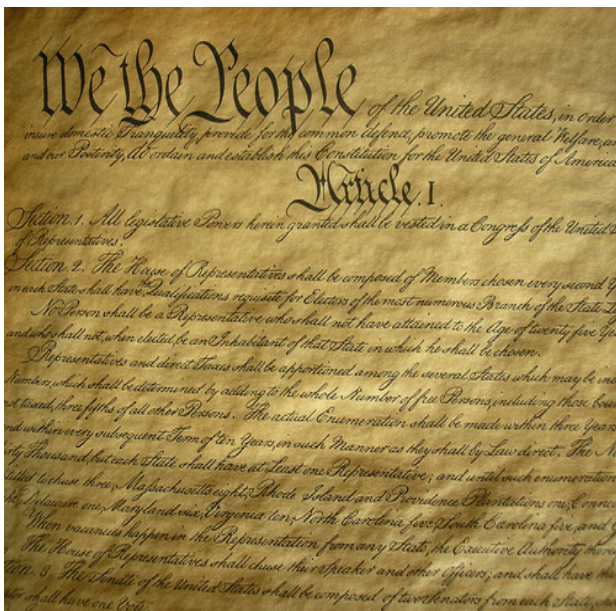 We the People of the United States, in order
insure domestic Tranquility, provide for the common defence, promote the general Welfare, an
and our Posterity, do ordain and establish this Constitution for the United States of America
Article. I.
Section. 1. All legislative Powers herein granted shall be vested in a Congress of the United
of Representatives.
Section. 2. The House of Representatives shall be composed of Members chosen every second Y
in each State shall have the Qualifications requisite for Electors of the most numerous Branch of the State
No Person shall be a Representative who shall not have attained to the Age of twenty five Yea
and who shall not, when elected, be an Inhabitant of that State in which he shall be chosen.
Representatives and direct Taxes shall be apportioned among the several States which may be
Numbers, which shall be determined by adding to the whole Number of free Persons, including those
not taxed, three fifths of all other Persons. The actual Enumeration shall be made within three Years
nd within every subsequent Term of ten Years, in such Manner as they shall by Law direct. The
rty Thousand, but each State shall have at Least one Representative; and until such enumeration
titled to chuse three, Massachusetts eight, Rhode Island and Providence Plantations one, Connec
ght, Delaware one, Maryland six, Virginia ten, North Carolina five, South Carolina five, and
When vacancies happen in the Representation from any State, the Executive Authority
The House of Representatives shall chuse their Speaker and other Officers; and shall have
tion. 3 The Senate of the United States shall be composed of two Senators from each State,
shall have one Vote.